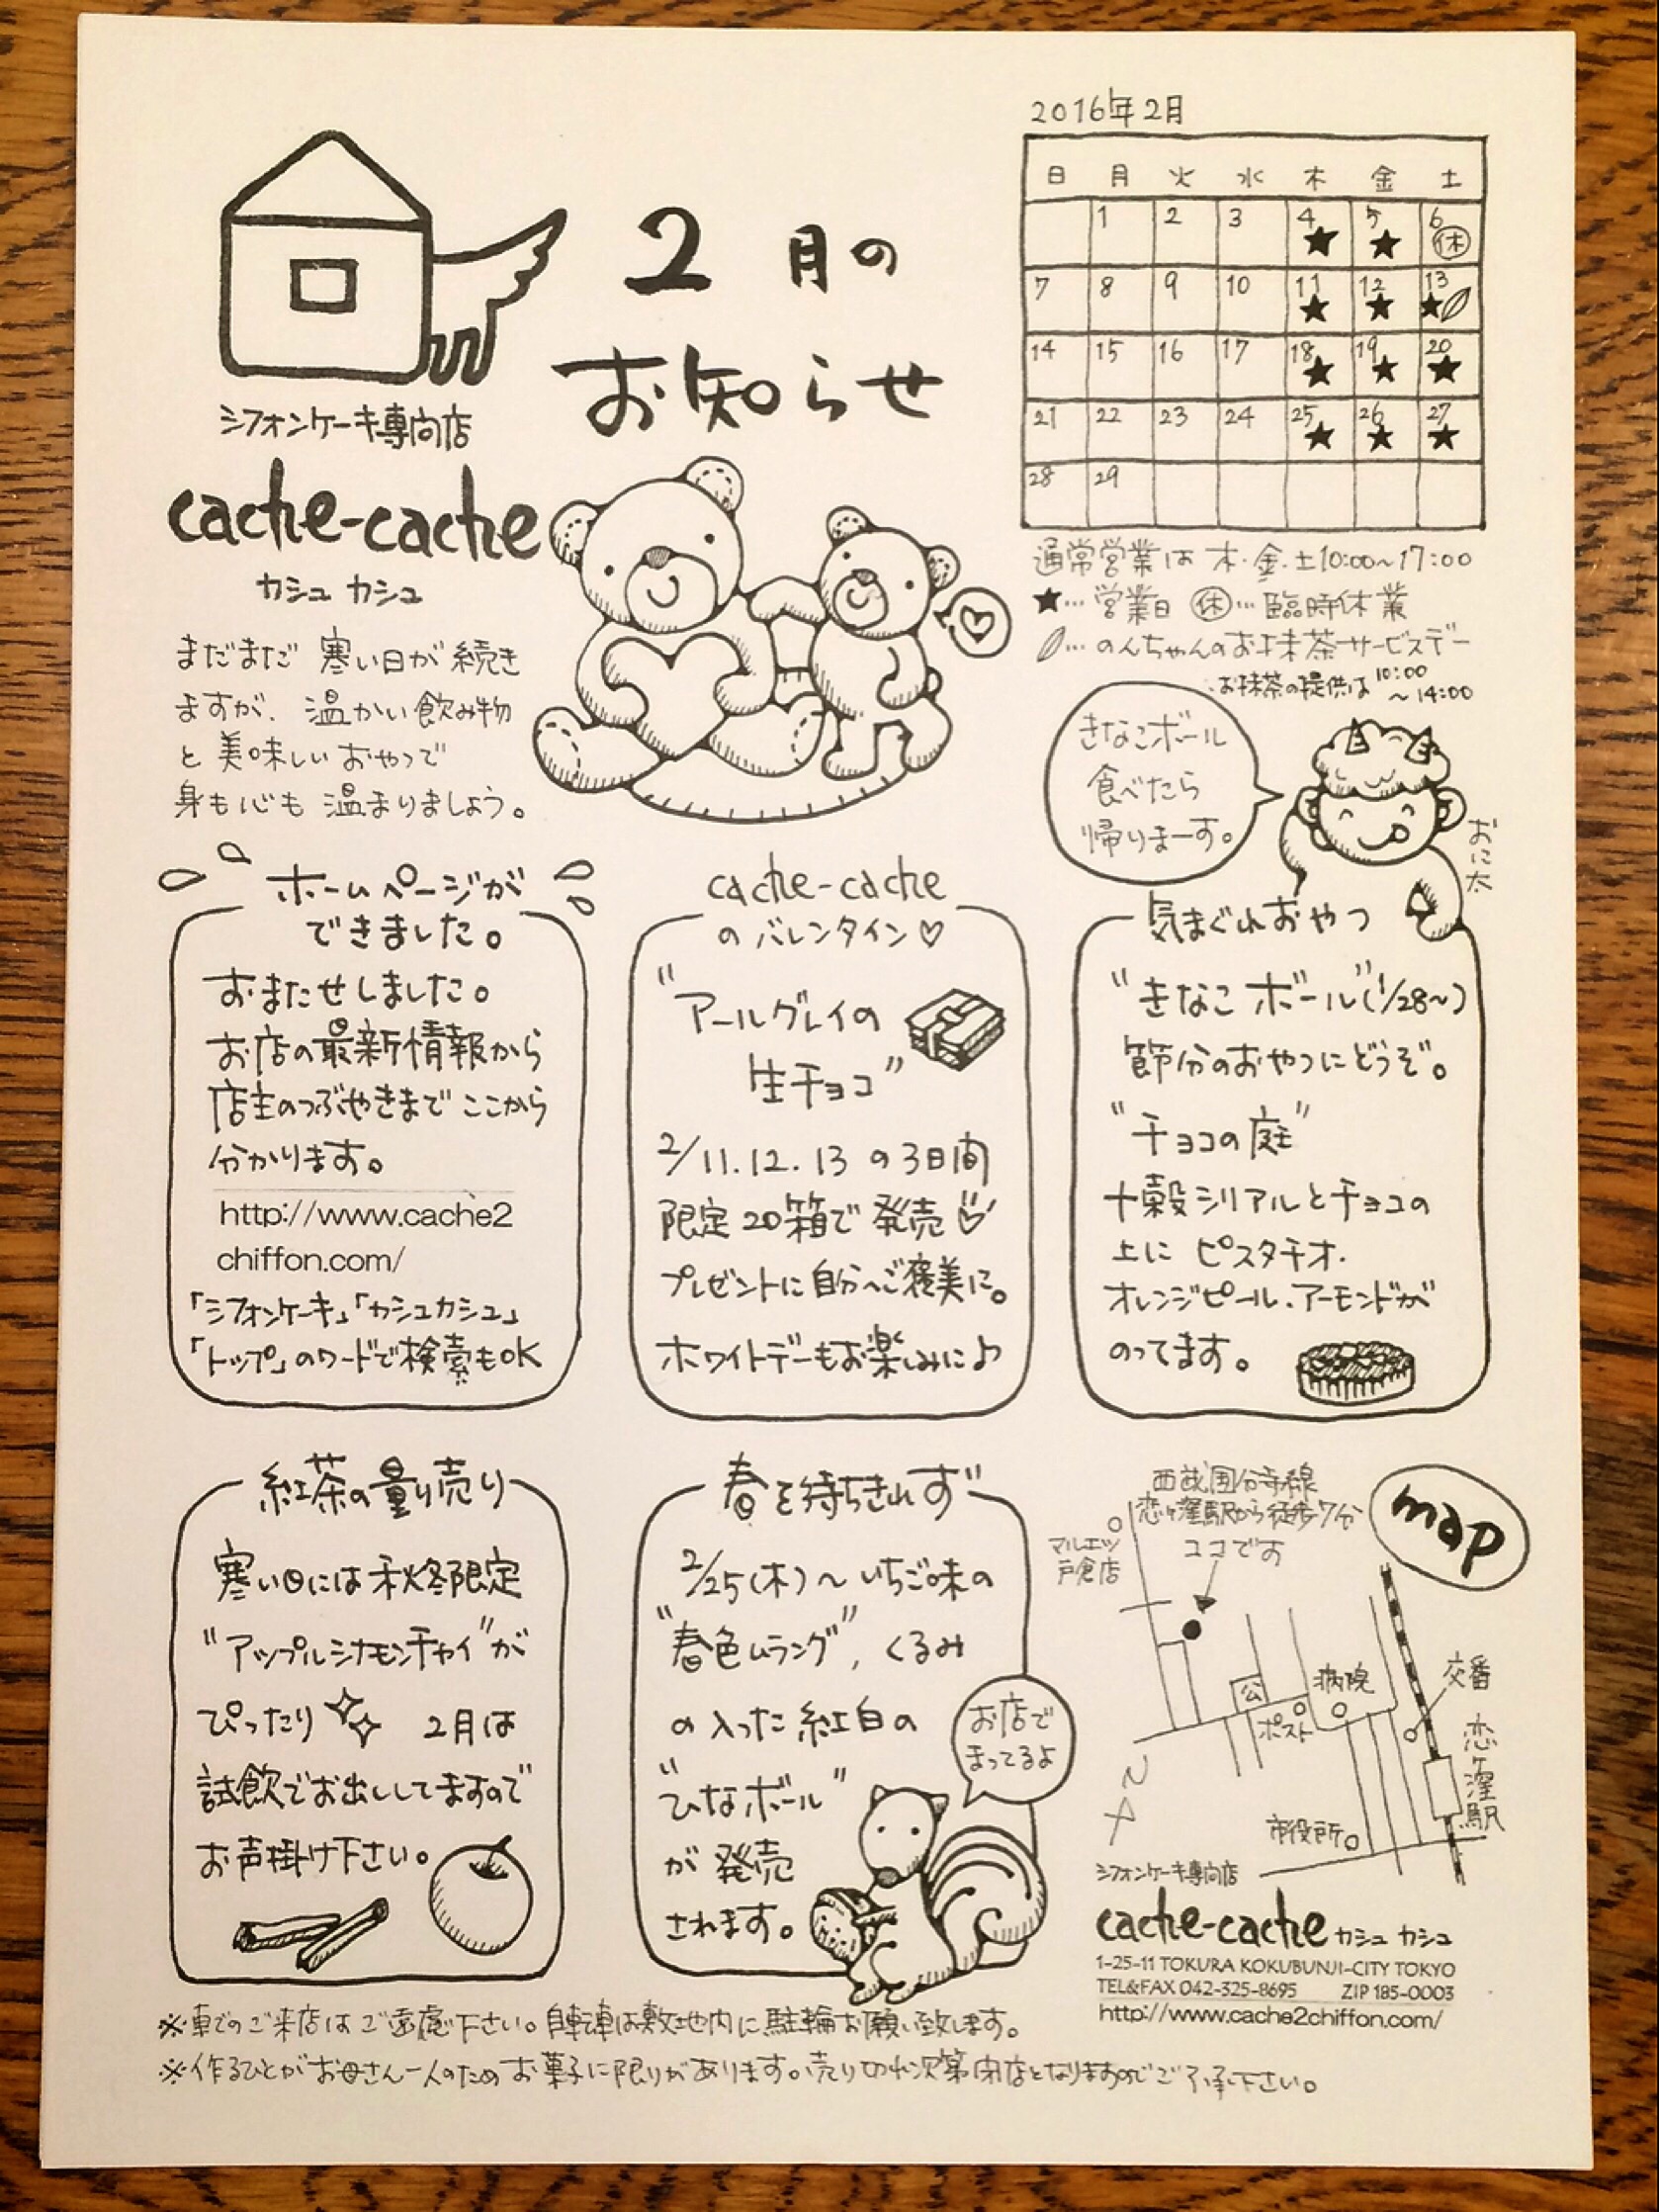 2月の
お知らせ
シフォンケーキ専向店
cache-cache
カシュ カシュ
まだまだ 寒い日が続き
ますが、温かい飲み物
と美味しいおやつで
身も心も 温まりましょう。
2016年2月
日 月 火 水 木 金 土
1 2 3 4★ 5★ 6㊡
7 8 9 10 11★ 12★ 13★
14 15 16 17 18★ 19★ 20★
21 22 23 24 25★ 26★ 27★
28 29
通常営業は 木・金・土10:00~17:00
★…営業日 ㊡…臨時休業
…のんちゃんのお抹茶サービスデー
お抹茶の提供は10:00~14:00
きなこボール
食べたら
帰りまーす。
おに太
ホームページが
できました。
おまたせしました。
お店の最新情報から
店主のつぶやきまでここから
分かります。
http://www.cache2
chiffon.com/
「シフォンケーキ」「カシュカシュ」
「トップ」のワードで検索もOK
cache-cache
のバレンタイン♡
"アールグレイの
生チョコ"
2/11.12.13 の3日間
限定20箱で発売♡
プレゼントに自分へご褒美に。
ホワイトデーもお楽しみに♪
気まぐれおやつ
"きなこボール"(1/28~)
節分のおやつにどうぞ。
"チョコの庭"
十穀シリアルとチョコの
上に ピスタチオ.
オレンジピール、アーモンドが
のってます。
紅茶の量り売り
寒い日には秋冬限定
"アップルシナモンチャイ"が
ぴったり 2月は
試飲でお出ししてますので
お声掛け下さい。
春を待ちきれず
2/25(木)~いちご味の
"春色ムラング", くるみ
の入った紅白の
"ひなボール"
が発売
されます。
お店で
まってるよ
map
西武国分寺線
恋ヶ窪駅から徒歩7分
ココです
マルエツ
戸倉店
公
病院
ポスト
交番
恋ヶ窪駅
市役所
N
シフォンケーキ専向店
cache-cache カシュ カシュ
1-25-11 TOKURA KOKUBUNJI-CITY TOKYO
TEL&FAX 042-325-8695 ZIP 185-0003
http://www.cache2chiffon.com/
※車でのご来店はご遠慮下さい。自転車は敷地内に駐輪お願い致します。
※作るひとがお母さん一人のためお菓子に限りがあります。売り切れ次第閉店となりますのでご了承下さい。